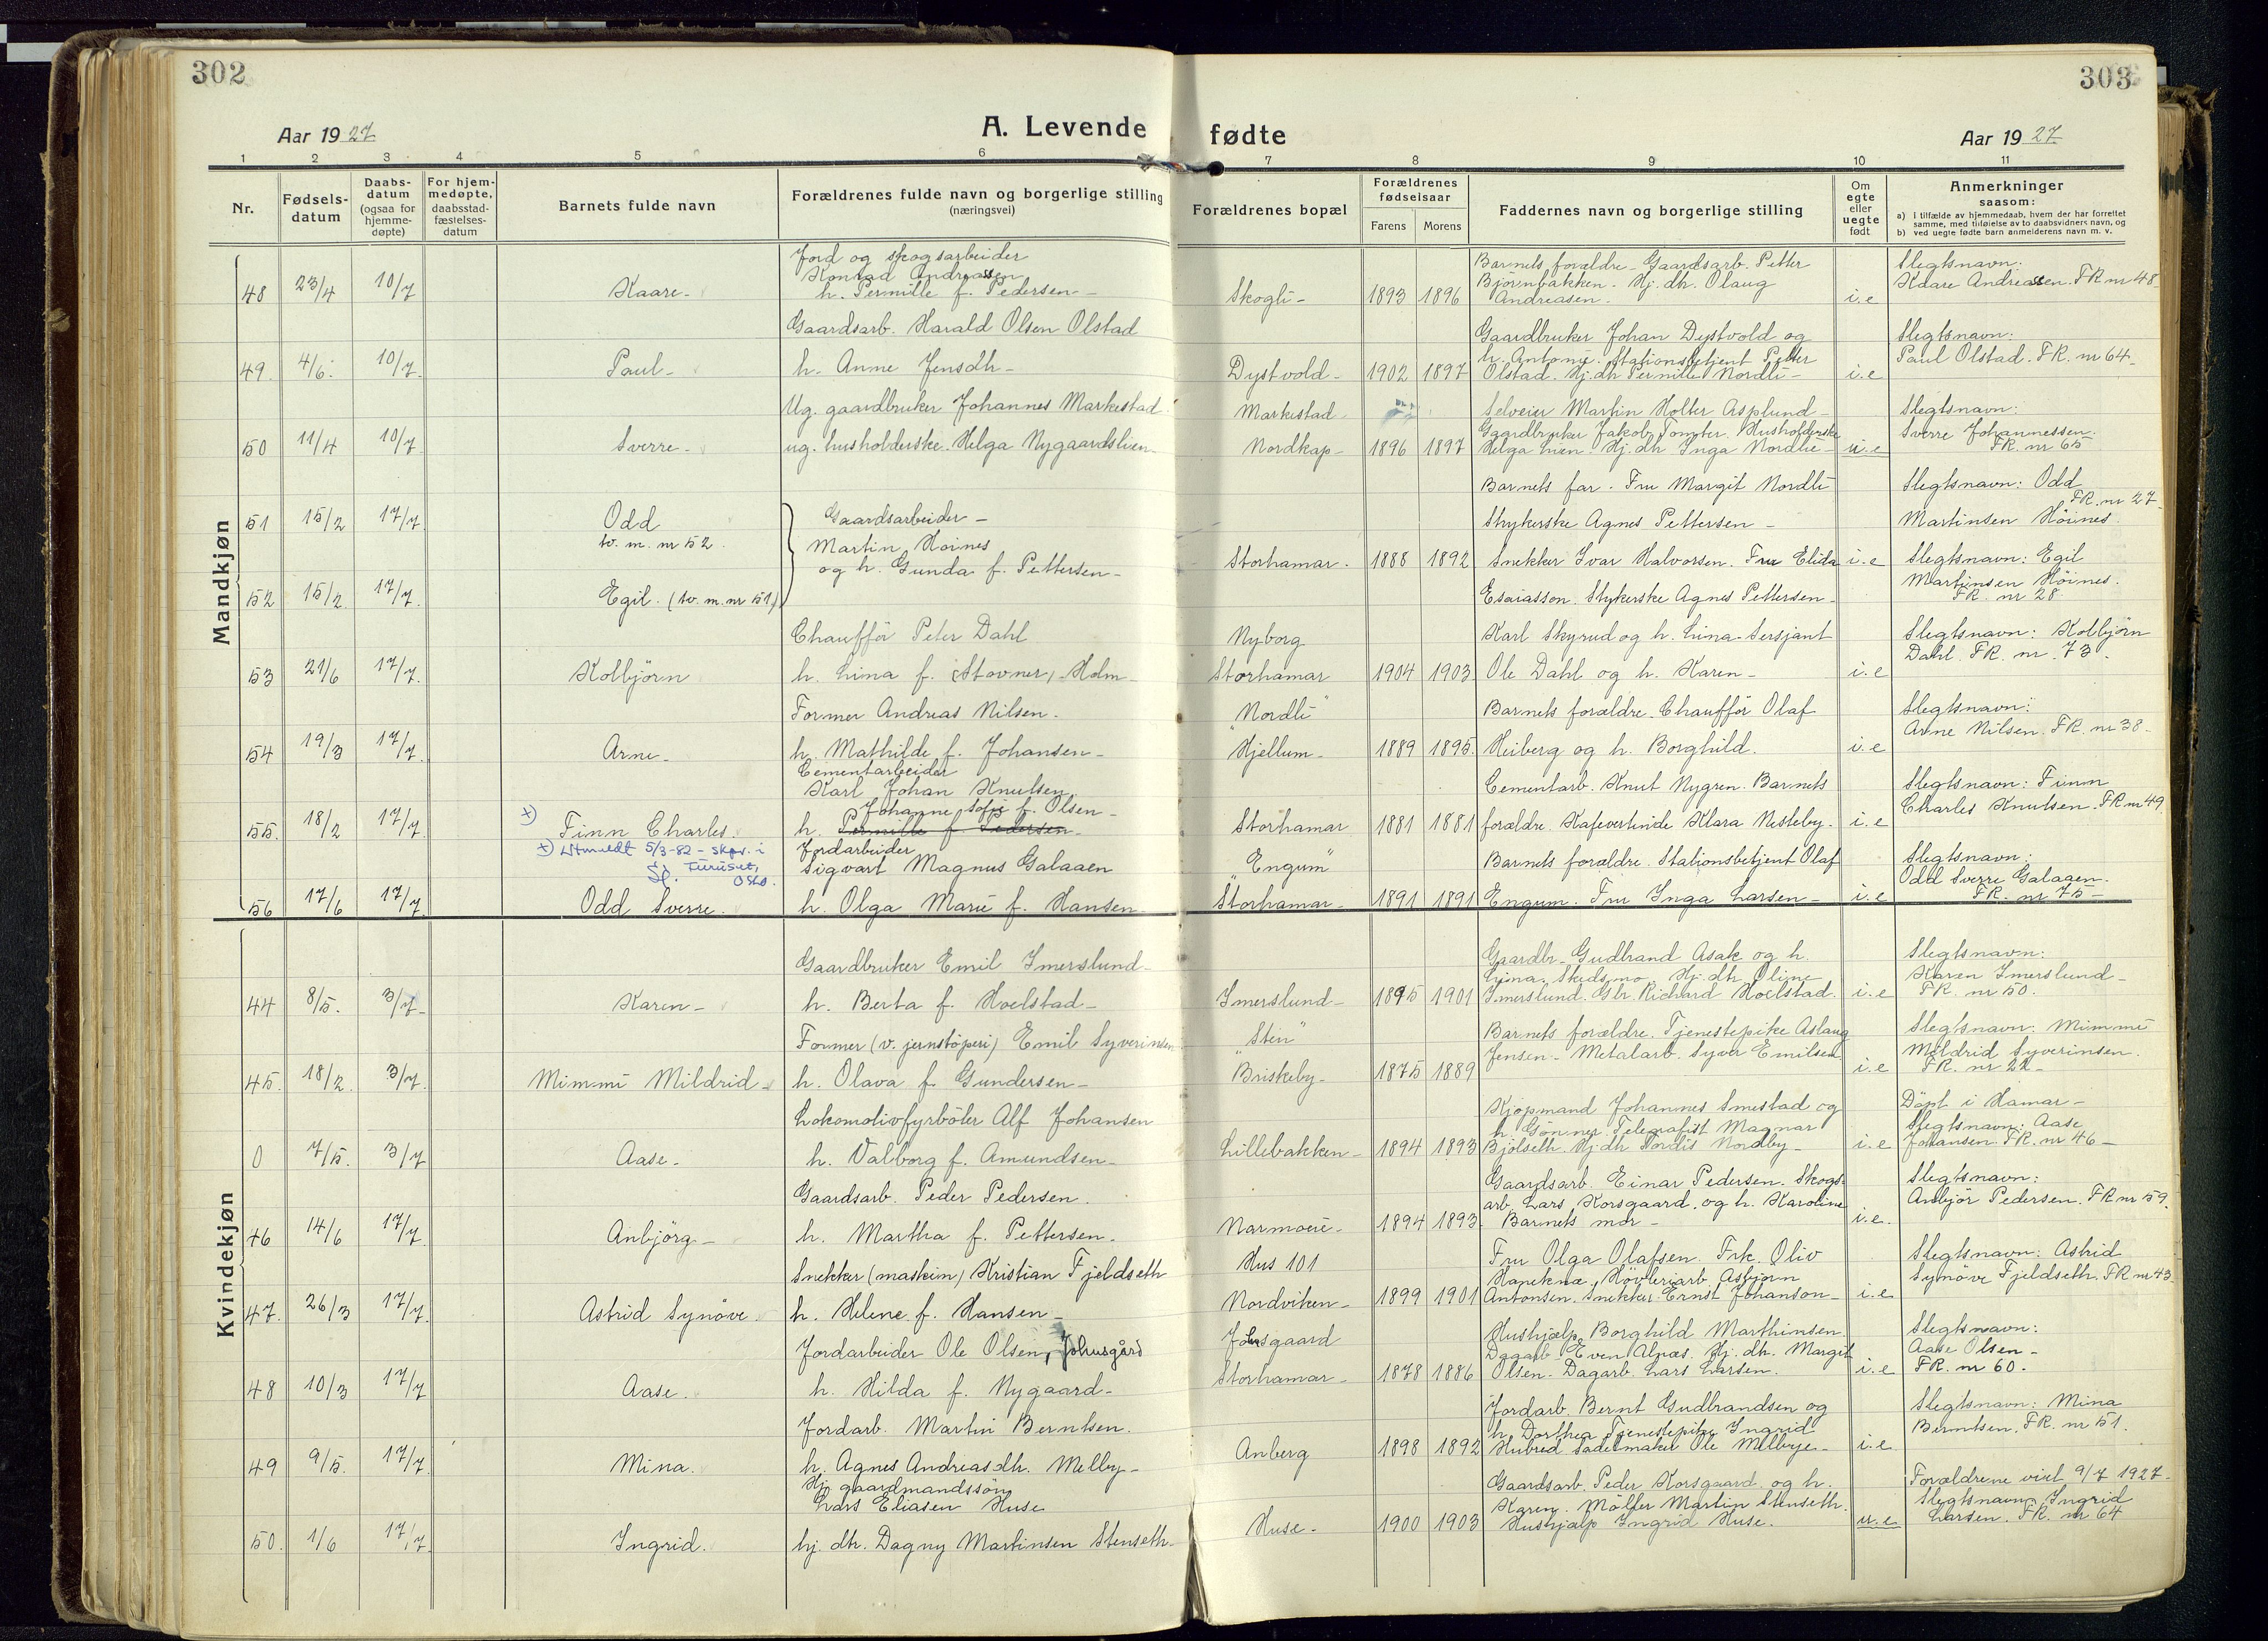 302
303
Aar 1927
A. Levende fødte
Aar 1927
1 2 3 4 5 6 7 8 9 10 11
Nr.
Fødsels-
datum
Daabs-
datum
(ogsaa for
hjemme-
døpte)
For hjem-
medøpte,
daabsstad-
fæstelses-
datum
Barnets fulde navn
Forældrenes fulde navn og borgerlige stilling
(næringsvei)
Forældrenes bopæl
Forældrenes
fødselsaar
Farens Morens
Faddernes navn og borgerlige stilling
Om
egte
eller
uegte
født
Anmerkninger
saasom:
a) i tilfælde av hjemmedaab, hvem der har forrettet
samme, med tilføielse av to daabsvidners navn, og
b) ved uegte fødte barn anmelderens navn m. v.
Mandkjøn
48 23/4 10/7 Kaare-
Jord og skogsarbeider
Konrad Andreassen
h. Pernille f. Pedersen-
Skogli- 1893 1896
Barnets forældre- Gaardsarb. Petter
Bjørnbakken. Hj. dh. Olaug
Andreasen.
i.e
Slegtsnavn:
Kaare Andreassen. FR nr 48-
49. 4/6. 10/7. Paul-
Gaardsarb. Harald Olsen Olstad
h. Anne Jensdh-
Dystvold- 1902 1897
Gaardbruker Johan Dystvold og
h. Antony. Stationsbetjent Petter
Olstad. Hj. dh Pernille Nordli-
i.e
Slegtsnavn:
Paul Olstad. FR. nr 64-
50 11/4 10/7 Sverre-
Ug. gaardbruker Johannes Markestad
ug. husholderske. Helga Nygaardslien-
Markestad
Nordkap- 1896 1897
Selveier Martin Holter Asplund-
Gaardbruker Jakob Tomter. Husholderske
Helga Lien Hj. dh Inga Nordli-
u.e
Slegtsnavn:
Sverre Johannessen.
FR. nr 65
51 15/2 17/7. Odd
tv. m. nr 52.
Gaardsarbeider-
Martin Høines
og h. Gunda f. Pettersen-
Storhamar. 1888 1892
Barnets far. Fru Margit Nordli
Strykerske Agnes Pettersen-
Snekker Ivar Halvorsen. Fru Elida
i.e
Slegtsnavn: Odd
FR. nr 27-
Martinsen Höines.
52 15/2. 17/7. Egil. (tv. m. nr 51)
Esaiasson. Strykerske Agnes Pettersen-
Slegtsnavn: Egil
Martinsen Höines.
FR. nr 28.
53 21/6 17/7. Kolbjörn
Chaufför Peter Dahl
h. Lina f. (Stovner) Holm-
Nyborg
Storhamar 1904 1903
Karl Skyrud og h. Lina. Sersjant
Ole Dahl og h. Karen-
i.e
Slegtsnavn: Kolbjörn
Dahl. FR. nr. 73.
54 19/3 17/7. Arne-
Former Andreas Nilsen.
h. Mathilde f. Johansen-
"Nordli"
Hjellum- 1889 1895.
Barnets forældre. Chauffør Olaf
Heiberg og h. Borghild.
i.e
Slegtsnavn:
Arne Nilsen. FR. nr 38.
55. 18/2 17/7. +) Finn Charles.
+) Utmeldt 5/3-82 - skpr. i
Furuset,
Oslo.
Cementarbeider
Karl Johan Knutsen.
Johanne Sofie f. Olsen-
h. Pernille f Pedersen-
Storhamar 1881 1881
Cementarb. Knut Nygren. Barnets
forældre. Kafevertinde Klara Nesteby.
i.e
Slegtsnavn: Finn
Charles Knutsen. FR nr 49
56 17/6 17/7. Odd Sverre.
Jordarbeider
Sigvart Magnus Galaaen
h. Olga Marie f. Hansen-
"Engum"
Storhamar- 1891 1891
Barnets forældre. Stationsbetjent Olaf
Engum. Fru Inga Larsen-
i.e
Slegtsnavn:
Odd Sverre Galaaen.
FR. nr 75-
Kvindekjøn
44 8/5. 3/7- Karen-
Gaardbruker Emil Imerslund-
h. Berta f. Hoelstad-
Imerslund- 1895 1901
Gaardbr- Gudbrand Asak og h.
Lina, Skedsmo, Hj. dh Oline
Imerslund. Gbr. Richard Hoelstad.
i.e
Slegtsnavn:
Karen Imerslund-
FR. nr 50.
45. 18/2. 3/7. Mimmi Mildrid-
Former (v. jernstöperi) Emil Syverinsen
h. Olava f. Gundersen-
"Sten"
Briskeby- 1875 1889
Barnets forældre. Tjenestepike Aslaug
Jensen- Metalarb. Syver Emilsen
i.e
Slegtsnavn: Mimmi
Mildrid Syverinsen.
FR. nr 22-
0 7/5. 3/7 Aase-
Lokomotivfyrböter Alf Johansen
h. Valborg f. Amundsen-
Lillebakken- 1894 1893
Kjøpmand Johannes Smestad og
h. Gönner. Telegrafist Magnar
Bjölseth. Hj. dh Tordis Nordby-
i.e
Döpt i Hamar-
Slegtsnavn: Aase
Johansen. FR. nr 46-
46 14/6 17/7. Anbjörg-
Gaardsarb. Peder Pedersen.
h. Martha f. Pettersen.
Narmoeie- 1894 1893
Gaardsarb. Einar Pedersen. Skogs-
arb. Lars Korsgaard, og h. Karoline
Barnets mor-
i.e.
Slegtsnavn:
Anbjör Pedersen. FR nr 59.
47. 26/3 17/7. Astrid Synöve.
Snekker (maskin) Kristian Fjeldseth
h. Helene f. Hansen-
Hus 101
Nordviken- 1899 1901
Fru Olga Olafsen. Frk. Oliv
Haneknæ, Høvleriarb. Asbjørn
Antonsen. Snekker Ernst Johanson-
i.e
Slegtsnavn: Astrid
Synöve Fjeldseth. FR nr 43.
48 10/3 17/7 Aase.
Jordarbeider Ole Olsen, Johusgård
h. Hilda f. Nygaard-
Johusgaard
Storhamar- 1878 1886
Hushjælp Borghild Marthinsen
Dagarb. Even Alnæs. Hj. dh. Margit
Olsen- Dagarb. Lars Larsen.
i.e
Slegtsnavn:
Aase Olsen-
FR. nr 60.
49 9/5. 17/7. Mina.
Jordarb. Martin Berntsen.
h. Agnes Andreasdh. Melby-
Anberg 1898 1892
Jordarb. Bernt Gudbrandsen og
h. Dorthea Tjenestepike Ingrid
Hubred Sadelmaker Ole Melbye-
i.e
Slegtsnavn: Mina
Berntsen. FR. nr 51.
50. 1/6 17/7. Ingrid.
Hj. gaardmandssön
Lars Eliasen Huse
hj. dtr. Dagny Martinsen Stenseth-
Huse- 1900 1903
Gaardsarb. Peder Korsgaard, og h.
Karen. Møller Martin Stenseth.
Hushjælp Ingrid Huse.
u.e
Forældrene viet 9/7 1927-
Slegtsnavn: Ingrid
Larsen. FR. nr 64